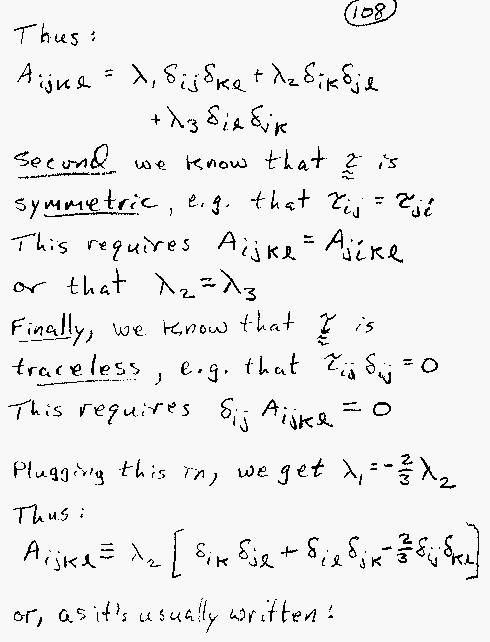 108
Thus:
A_ijkl = λ₁ δ_ij δ_kl + λ₂ δ_ik δ_jl
+ λ₃ δ_il δ_jk
Second we know that τ is
symmetric, e.g. that τ_ij = τ_ji
This requires A_ijkl = A_jikl
or that λ₂ = λ₃
Finally, we know that τ is
traceless, e.g. that τ_ij δ_ij = 0
This requires δ_ij A_ijkl = 0
Plugging this in, we get λ₁ = -2/3 λ₂
Thus:
A_ijkl ≡ λ₂ [ δ_ik δ_jl + δ_il δ_jk - 2/3 δ_ij δ_kl ]
or, as it's usually written: